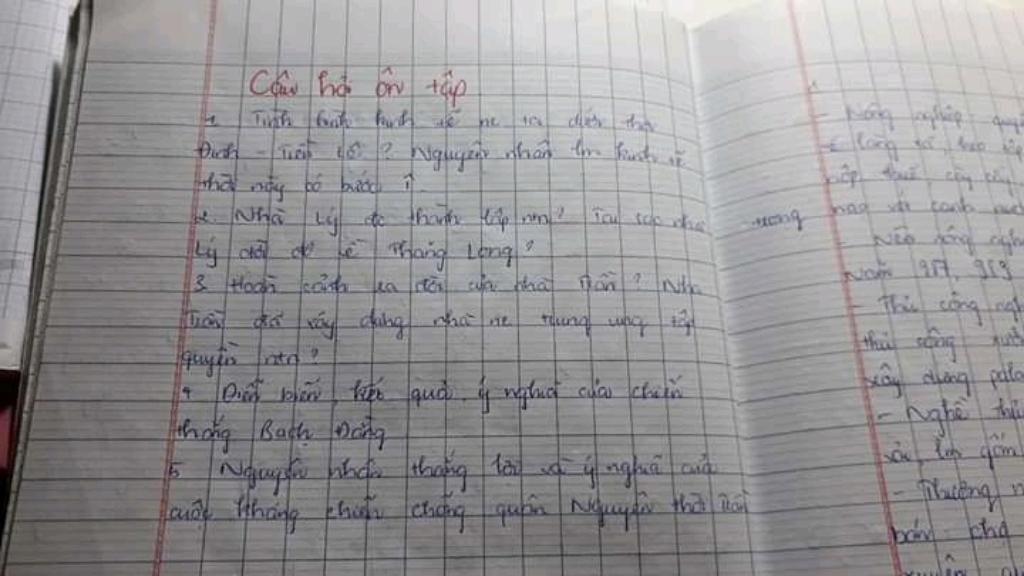 Câu hỏi ôn tập
1. Tình hình kinh tế nc ta dưới thời
Đinh - Tiền Lê? Nguyên nhân lm kinh tế
thời này có bước ↑.
2. Nhà Lý đc thành lập ntn? Tại sao nhà
Lý dời đô về Thăng Long?
3. Hoàn cảnh ra đời của nhà Trần? Nhà
Trần đã xây dựng nhà nc trung ương tập
quyền ntn?
4 Diễn biến, kết quả, ý nghĩa của chiến
thắng Bạch Đằng
5 Nguyên nhân thắng lợi và ý nghĩa của
cuộc kháng chiến chống quân Nguyên thời Trần
- Nông nghiệp quyền
nộp thuế
- Nếp sống
Năm 987, 989
- Thủ công ngh
xây dựng
- Nghề thủ
gốm
- Thương n
bán chợ